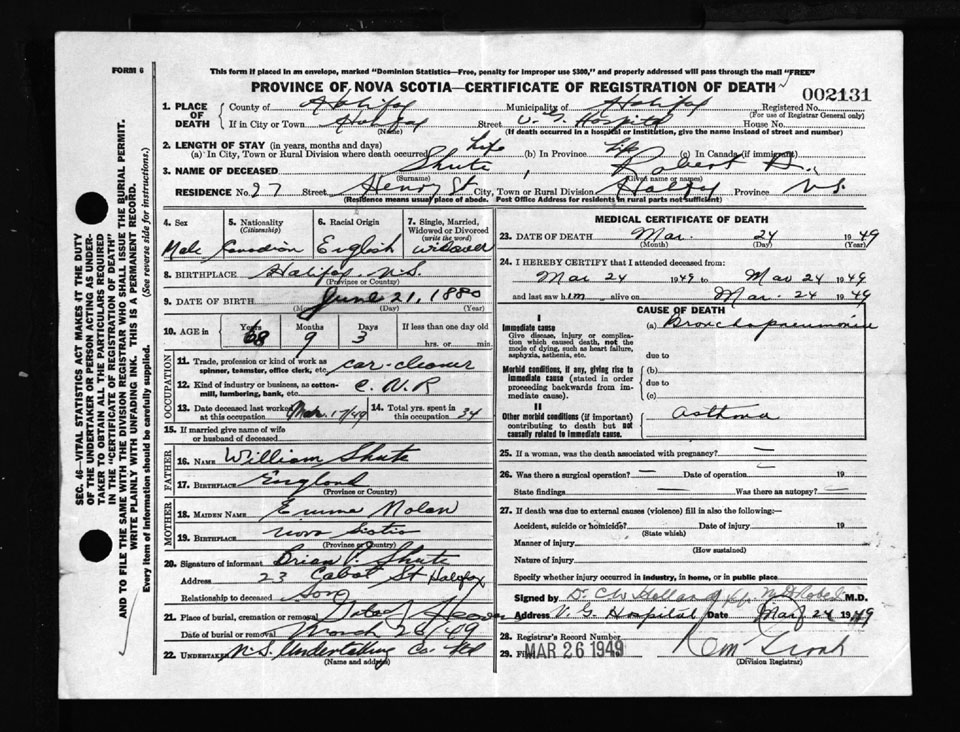 FORM 6
This form if placed in an envelope, marked "Dominion Statistics—Free, penalty for improper use $300," and properly addressed will pass through the mail "FREE"
PROVINCE OF NOVA SCOTIA—CERTIFICATE OF REGISTRATION OF DEATH
002131
1. PLACE OF DEATH County of Halifax Municipality of Halifax Registered No. (For use of Registrar General only)
If in City or Town Halifax (Name) Street V. G. Hospital House No.
(If death occurred in a hospital or institution, give the name instead of street and number)
2. LENGTH OF STAY (in years, months and days)
(a) In City, Town or Rural Division where death occurred Life (b) In Province Life (c) In Canada (if immigrant)
3. NAME OF DECEASED Shute (Surname) Robert (Given name or names)
RESIDENCE No. 27 Street Henry St. City, Town or Rural Division Halifax Province N.S.
(Residence means usual place of abode. Post Office Address for residents in rural parts not sufficient)
SEC. 46—VITAL STATISTICS ACT MAKES IT THE DUTY
OF THE UNDERTAKER OR PERSON ACTING AS UNDER-
TAKER TO OBTAIN ALL THE PARTICULARS REQUIRED
IN THE "CERTIFICATE OF REGISTRATION OF DEATH"
AND TO FILE THE SAME WITH THE DIVISION REGISTRAR WHO SHALL ISSUE THE BURIAL PERMIT.
WRITE PLAINLY WITH UNFADING INK. THIS IS A PERMANENT RECORD.
Every item of information should be carefully supplied. (See reverse side for instructions.)
4. Sex Male
5. Nationality (Citizenship) Canadian
6. Racial Origin English
7. Single, Married, Widowed or Divorced (write the word) widower
8. BIRTHPLACE Halifax N.S.
(Province or Country)
9. DATE OF BIRTH June 21, 1880
(Month) (Day) (Year)
10. AGE in Years 68 Months 9 Days 3 If less than one day old hrs. or min.
OCCUPATION
11. Trade, profession or kind of work as spinner, teamster, office clerk, etc. car-cleaner
12. Kind of industry or business, as cotton-mill, lumbering, bank, etc. C.N.R
13. Date deceased last worked at this occupation Mar. 17/49 14. Total yrs. spent in this occupation 34
15. If married give name of wife or husband of deceased
FATHER
16. NAME William Shute
17. BIRTHPLACE England
(Province or Country)
MOTHER
18. MAIDEN NAME Emma Nolan
19. BIRTHPLACE Nova Scotia
(Province or Country)
20. Signature of informant Brian P. Shute
Address 23 Cabot St Halifax
Relationship to deceased Son
21. Place of burial, cremation or removal
Date of burial or removal March 26/49
22. UNDERTAKER N.S. Undertaking Co. Ltd
(Name and address)
MEDICAL CERTIFICATE OF DEATH
23. DATE OF DEATH Mar. 24 1949
(Month) (Day) (Year)
24. I HEREBY CERTIFY that I attended deceased from:
Mar 24 1949 to Mar 24 1949
and last saw him alive on Mar. 24 1949
CAUSE OF DEATH
I
Immediate cause (a) Bronchopneumonia
Give disease, injury or complication which caused death, not the mode of dying, such as heart failure, asphyxia, asthenia, etc.
due to
Morbid conditions, if any, giving rise to immediate cause (stated in order proceeding backwards from immediate cause). (b)
due to
(c)
II
Other morbid conditions (if important) contributing to death but not causally related to immediate cause. asthma
25. If a woman, was the death associated with pregnancy? —
26. Was there a surgical operation? — Date of operation — 19
State findings Was there an autopsy? —
27. If death was due to external causes (violence) fill in also the following:—
Accident, suicide or homicide? Date of injury 19
(State which)
Manner of injury
(How sustained)
Nature of injury
Specify whether injury occurred in industry, in home, or in public place
Signed by Dr C W Holland M.D.
Address V. G. Hospital Date Mar 24 1949
28. Registrar's Record Number
29. MAR 26 1949
(Division Registrar)